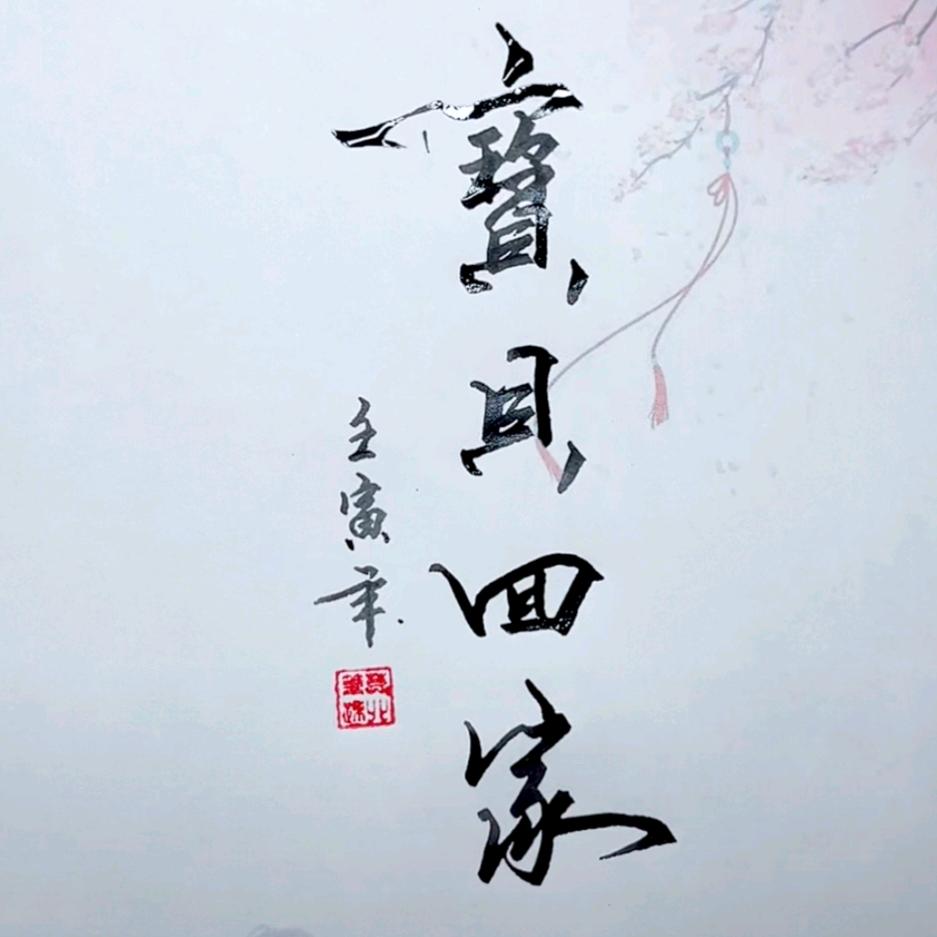 寶貝回家
壬寅年